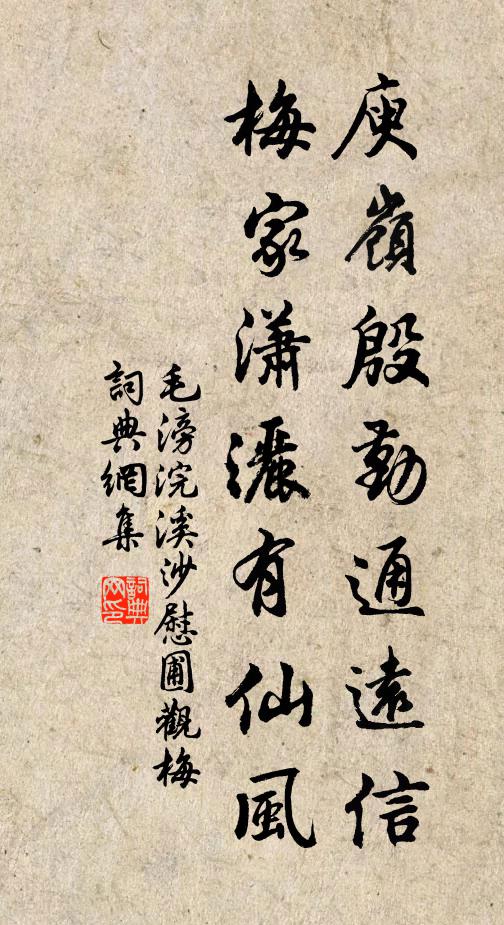 庾嶺殷勤通遠信
梅家瀟灑有仙風
毛滂浣溪沙慰圃觀梅
詞典網集
詞典網印